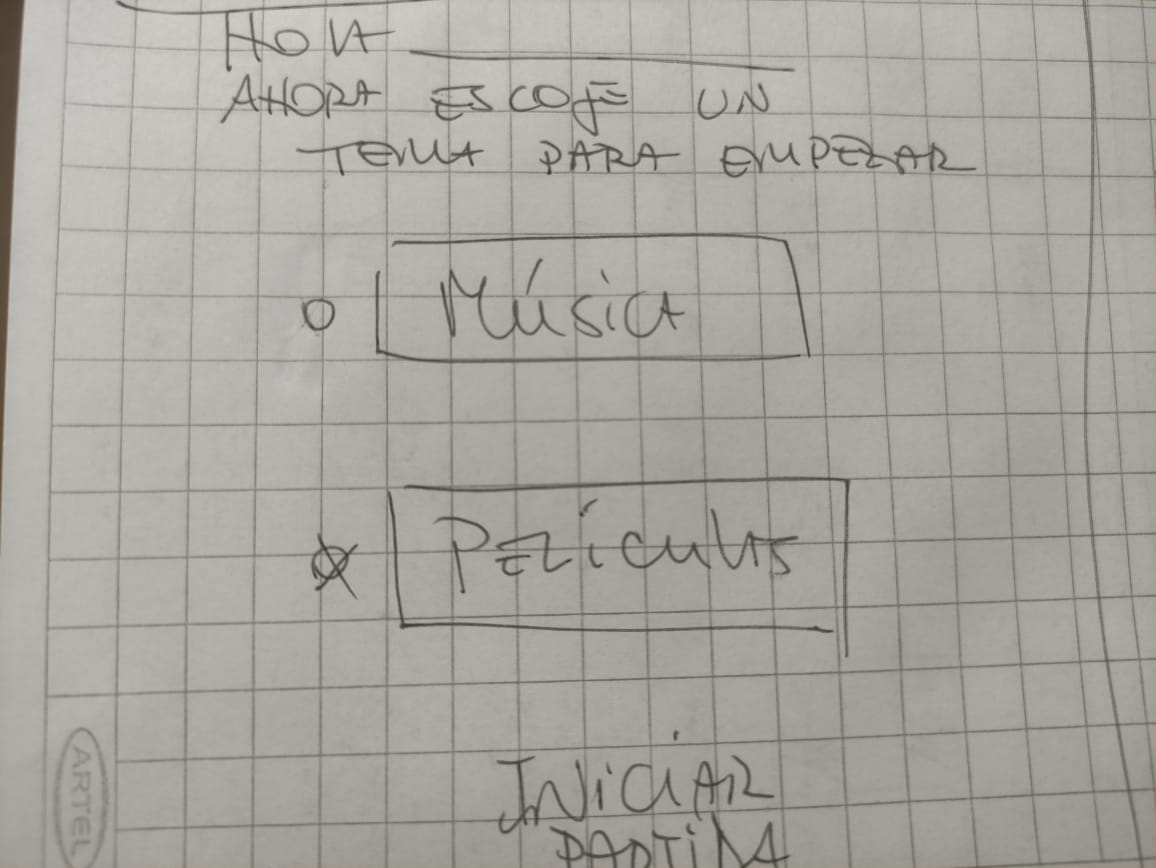 HOLA
AHORA ESCOJE UN
TEMA PARA EMPEZAR
Música
PELÍCULAS
INICIAR
PARTIDA
ARTEL